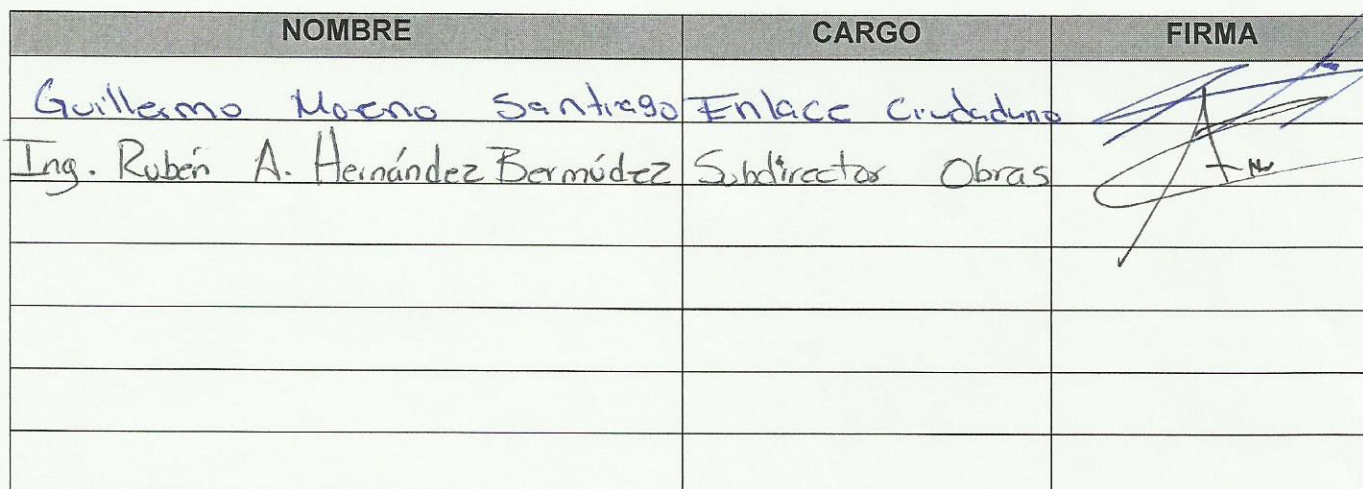 NOMBRE CARGO FIRMA
Guillermo Moreno Santiago Enlace Ciudadano
Ing. Rubén A. Hernández Bermúdez Subdirector Obras